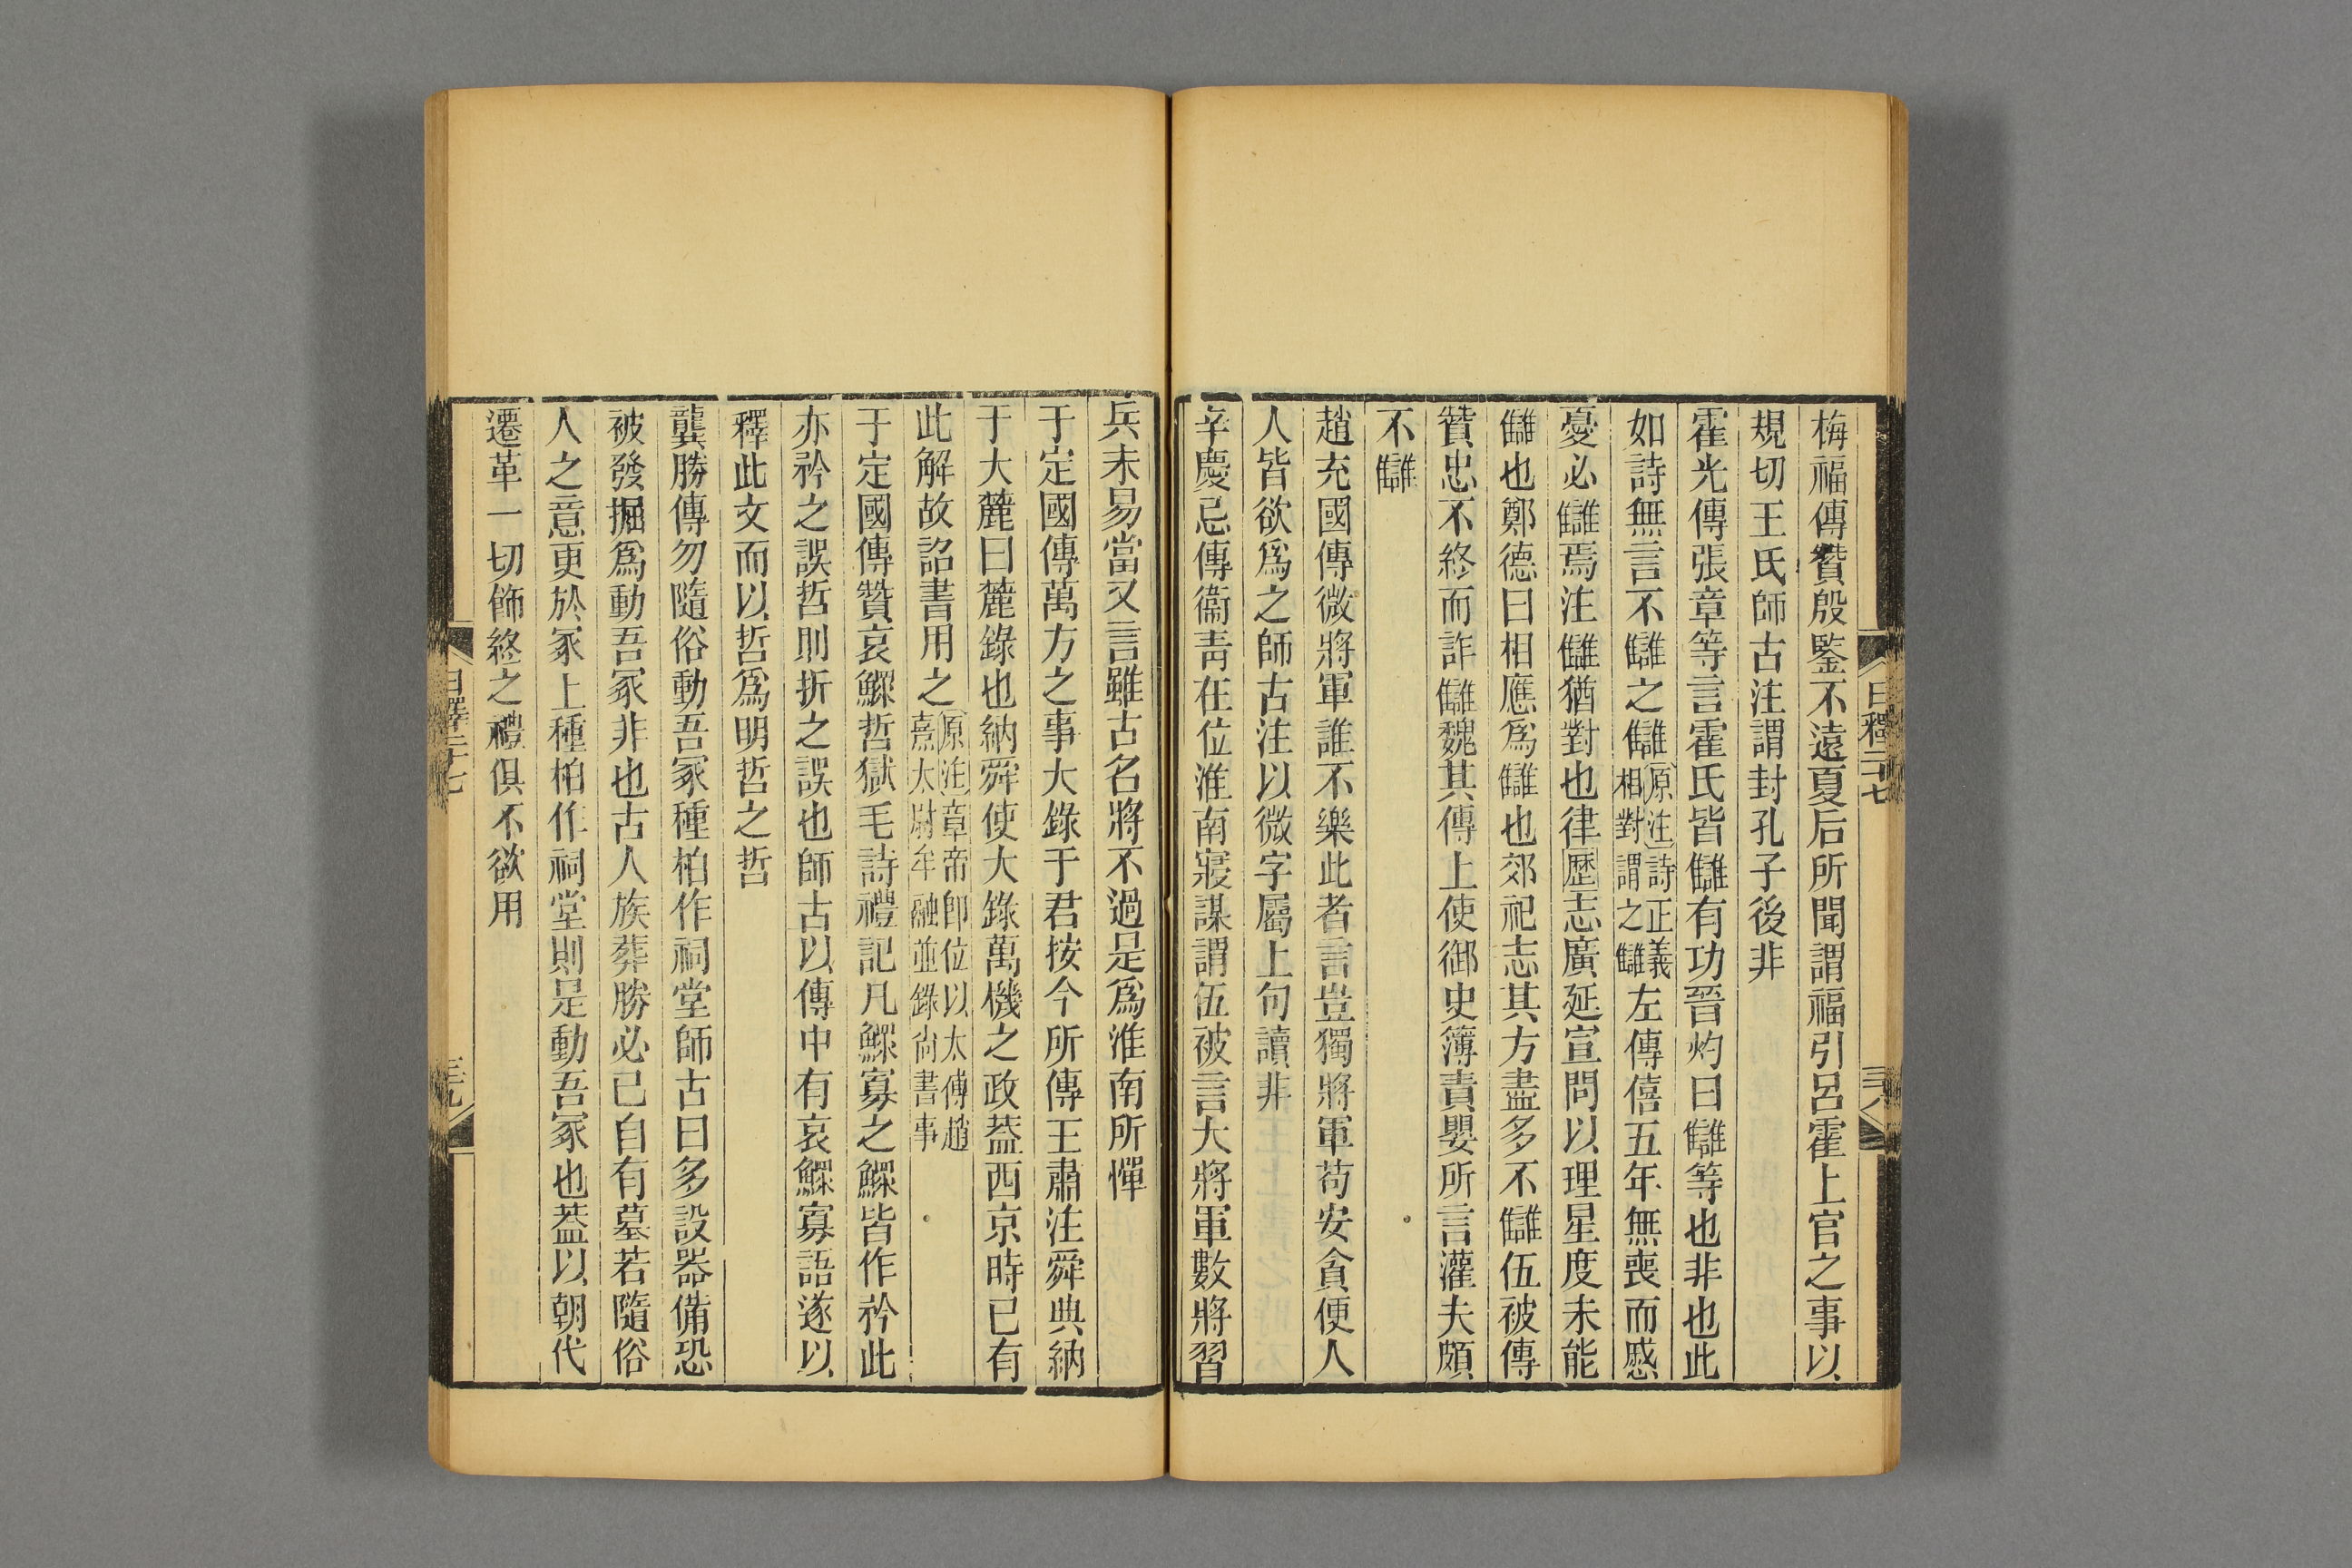 日釋二十七
三八
梅福傳贊殷鑒不遠夏后所聞謂福引呂霍上官之事以
規切王氏師古注謂封孔子後非
霍光傳張章等言霍氏皆讎有功晉灼曰讎等也非也此
如詩無言不讎之讎原注詩正義相對謂之讎左傳僖五年無喪而慼
憂必讎焉注讎猶對也律歷志廣延宣問以理星度未能
讎也鄭德曰相應爲讎也郊祀志其方盡多不讎伍被傳
贊忠不終而詐讎魏其傳上使御史簿責嬰所言灌夫頗
不讎
趙充國傳微將軍誰不樂此者言豈獨將軍苟安貪便人
人皆欲爲之師古注以微字屬上句讀非
辛慶忌傳衞青在位淮南寢謀謂伍被言大將軍數將習
兵未易當又言雖古名將不過是爲淮南所憚
于定國傳萬方之事大錄于君按今所傳王肅注舜典納
于大麓曰麓錄也納舜使大錄萬機之政葢西京時已有
此解故詔書用之原注章帝卽位以太傅趙憙太尉牟融並錄尙書事
于定國傳贊哀鰥哲獄毛詩禮記凡鰥寡之鰥皆作矜此
亦矜之誤哲則折之誤也師古以傳中有哀鰥寡語遂以
釋此文而以哲爲明哲之哲
龔勝傳勿隨俗動吾冢種柏作祠堂師古曰多設器備恐
被發掘爲動吾冢非也古人族葬勝必已自有墓若隨俗
人之意更於冢上種柏作祠堂則是動吾冢也葢以朝代
遷革一切飾終之禮俱不欲用
日釋二十七
三九